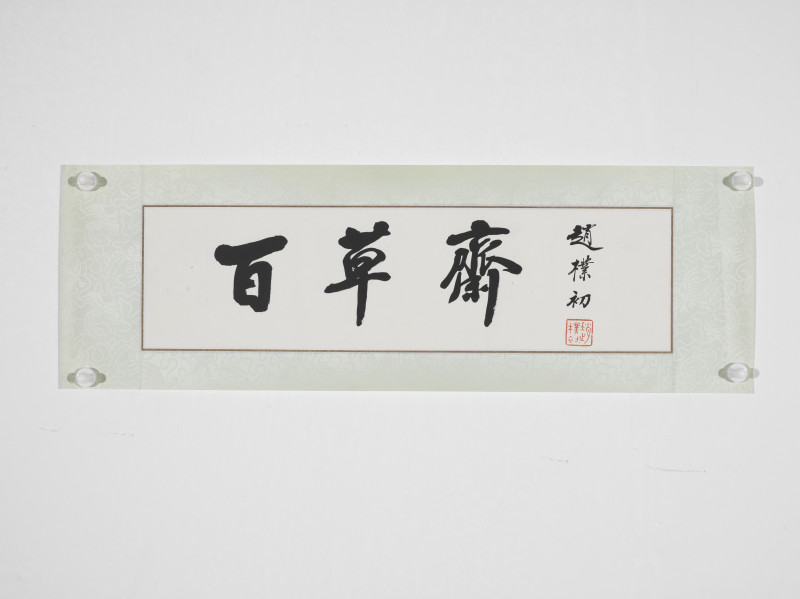 百草齋
趙樸初